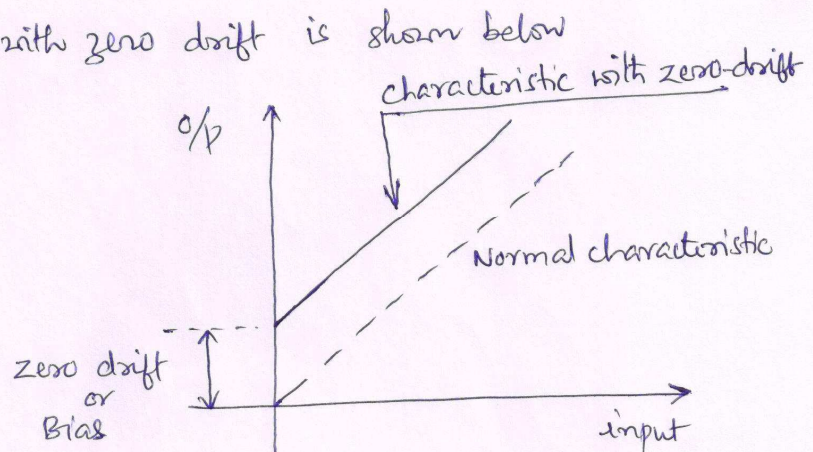 with zero drift is shown below
characteristic with zero-drift
o/p
Normal characteristic
zero drift
or
Bias
input